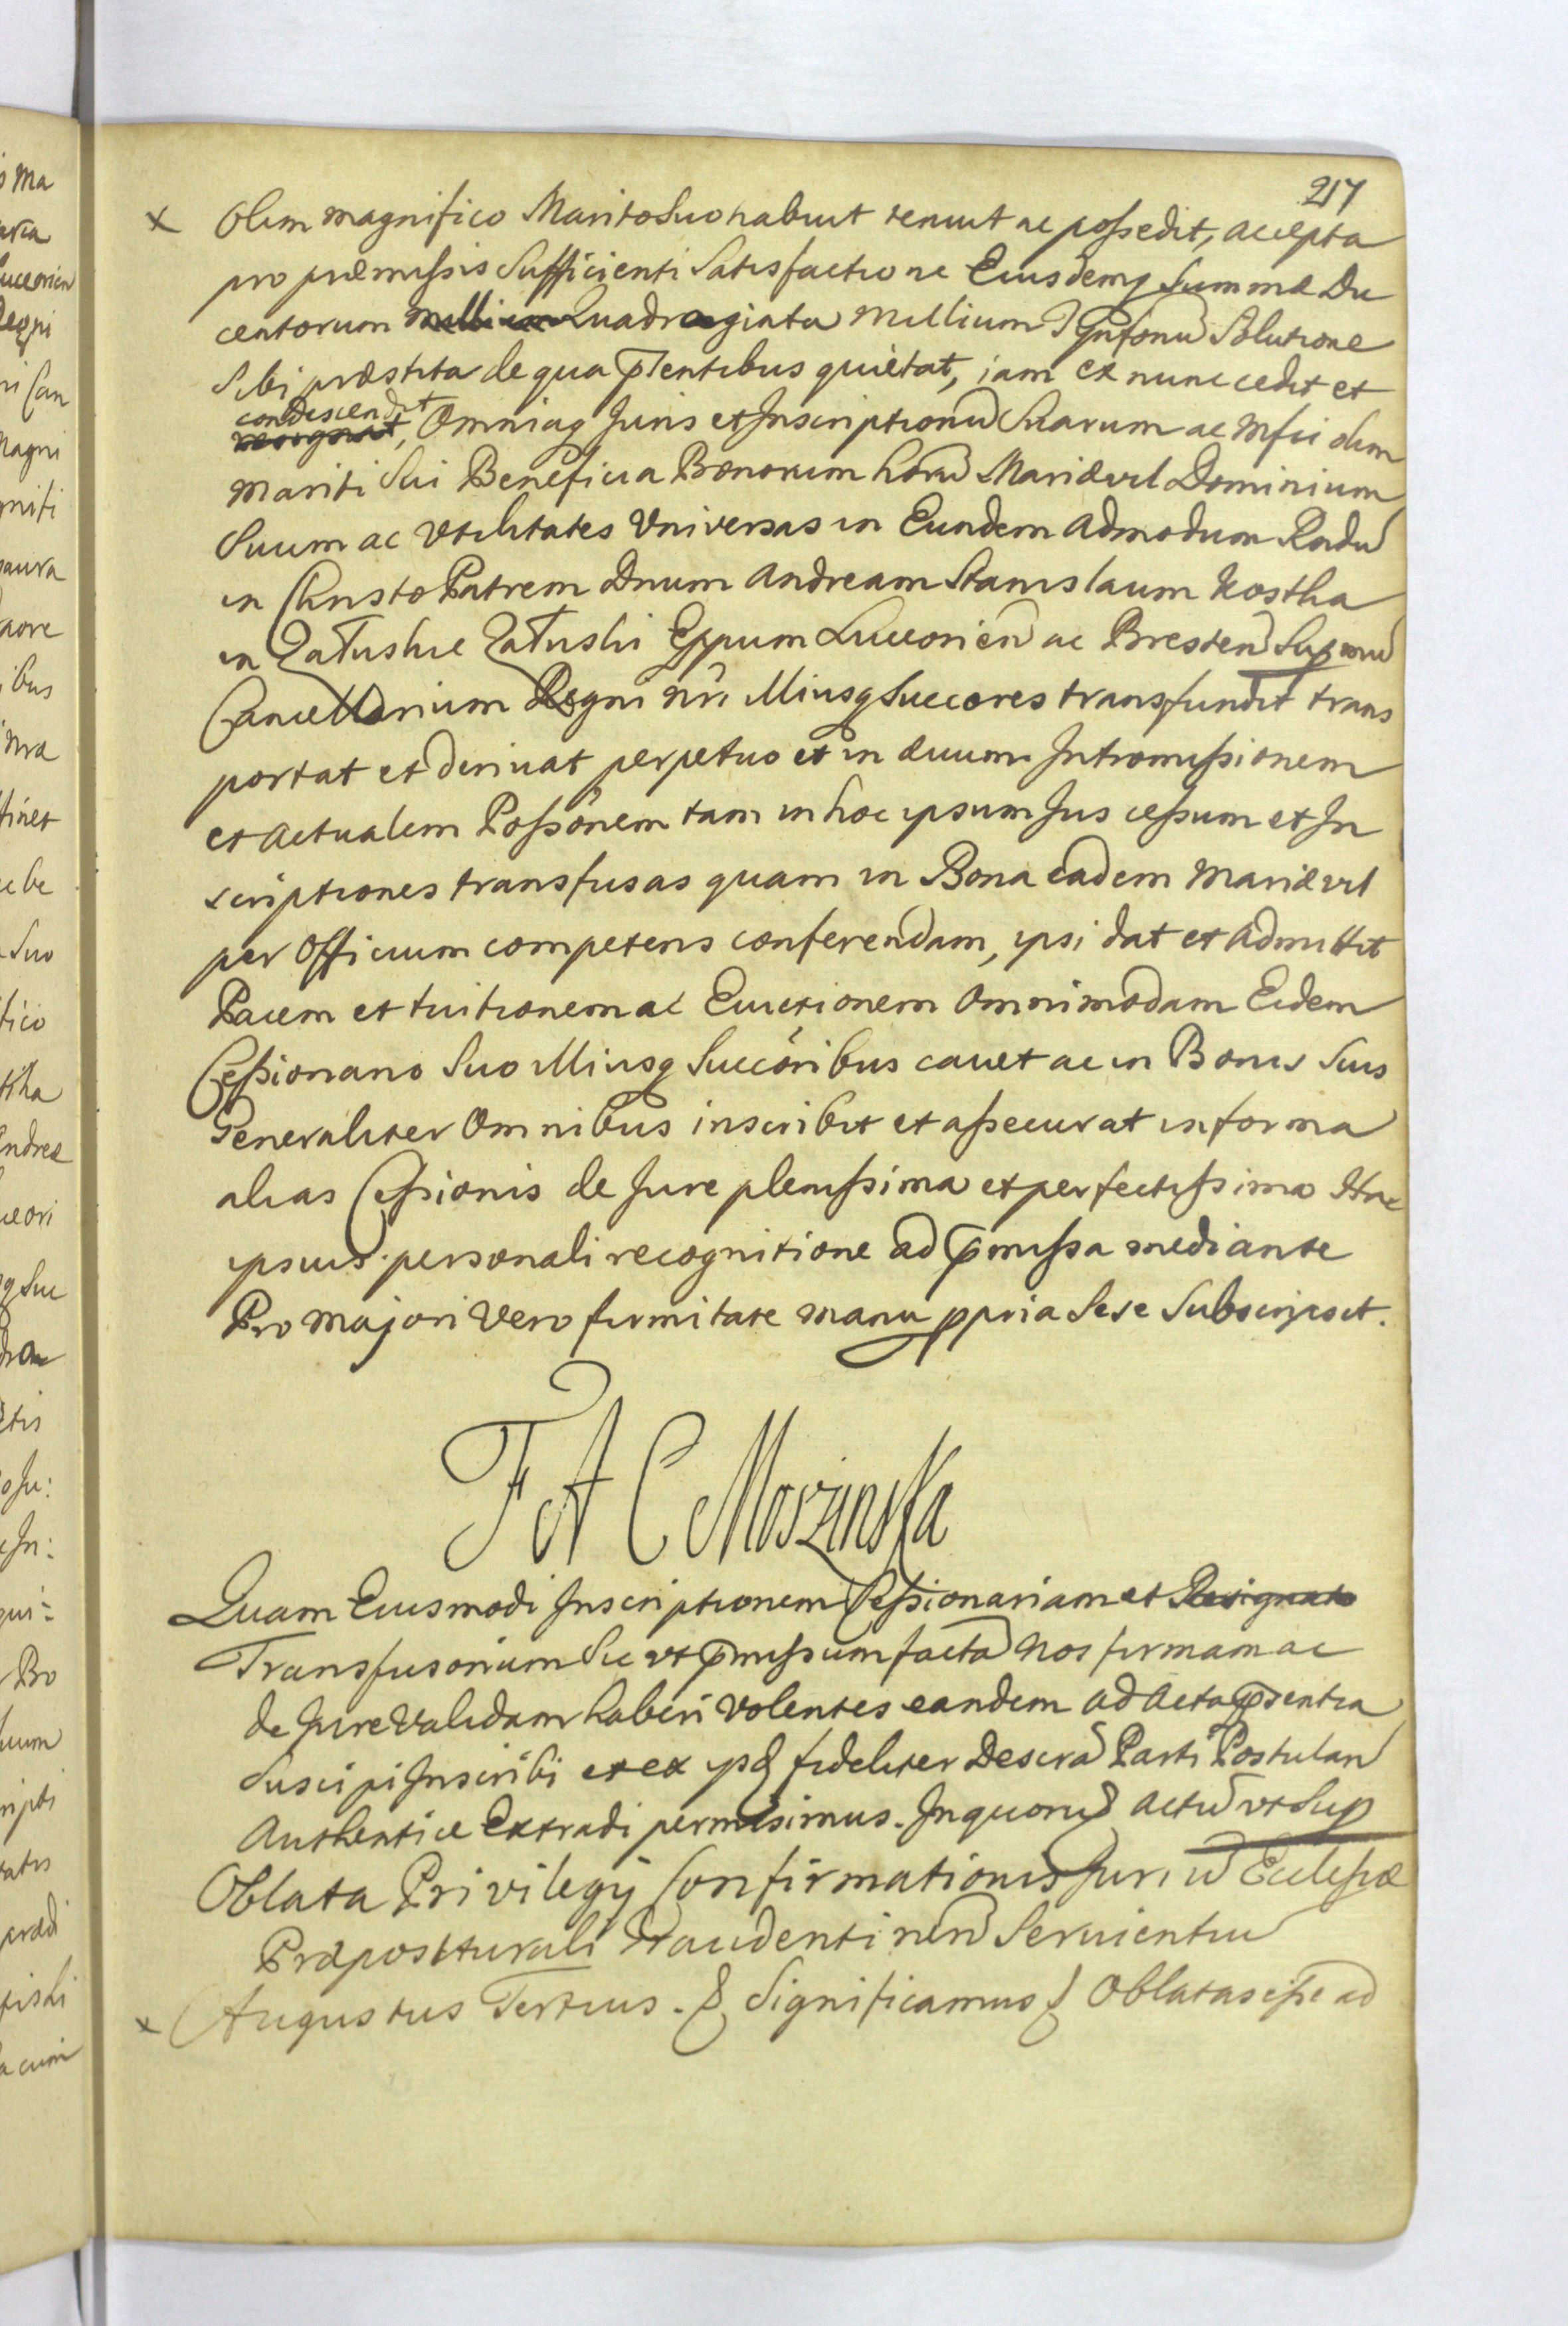 217
x Olim magnifico Marito Suo habuit tenuit ac possedit, accepta
pro præmissis Sufficienti Satisfactione Eiusdemq Summæ Du
centorum millium Quadraginta Millium Solutione
Sibi præstita de qua pñtentibus quietat, iam ex nunc cedit et
condescendit
resignat, Omniaq Juris et Inscriptionũ Suarum ac Mfci olim
Mariti Sui Beneficia Bonorum horũ Mariævil Dominium
Suum ac Vtilitates Vniversas in Eundem Admodum Rndũ
in Christo Patrem Dnum Andream Stanislaum Kostka
in Załuskie Załuski Eppum Luceorien ac Bresten Supmũ
Cancellarium Regni nri Illiusq Succores transfundit trans
portat et derivat perpetuo et in ævum. Intromissionem
et Actualem Possõnem tam in hoc ipsum Jus cessum et In
scriptiones transfusas quam in Bona eadem Mariævil
per Officium competens conferendam, ipsi dat et Admittit
Pacem et tuitionem ac Evictionem Omnimodam Eidem
Cessionario Suo Illiusq Succõribus cavet ac in Bonis Suis
Generaliter Omnibus inscribit et assecurat in forma
alias Cessionis de Jure plenissima et perfectissima Hac
ipsius personali recognitione ad pmissa mediante
Pro majori vero firmitate manu ppria Sese Subscripsit.
F A C Moszinska
Quam Eiusmodi Inscriptionem Cessionariam et Resignato
Transfusoriam Sic vt pmissum factã Nos firmam ac
de Jure Validam haberi Volentes eandem ad Acta pñsentia
Suscipi Inscribi et ex ips fideliter Descrã Parti Postulan
Authentice Extradi permisimus. In quorũ Actũ vt Sup
Oblata Privilegij Confirmationis Juriũ Ecclesiæ
Præpositurali Graudentinen Servientiũ
x Augustus Tertius. & Significamus & Oblatas esse ad